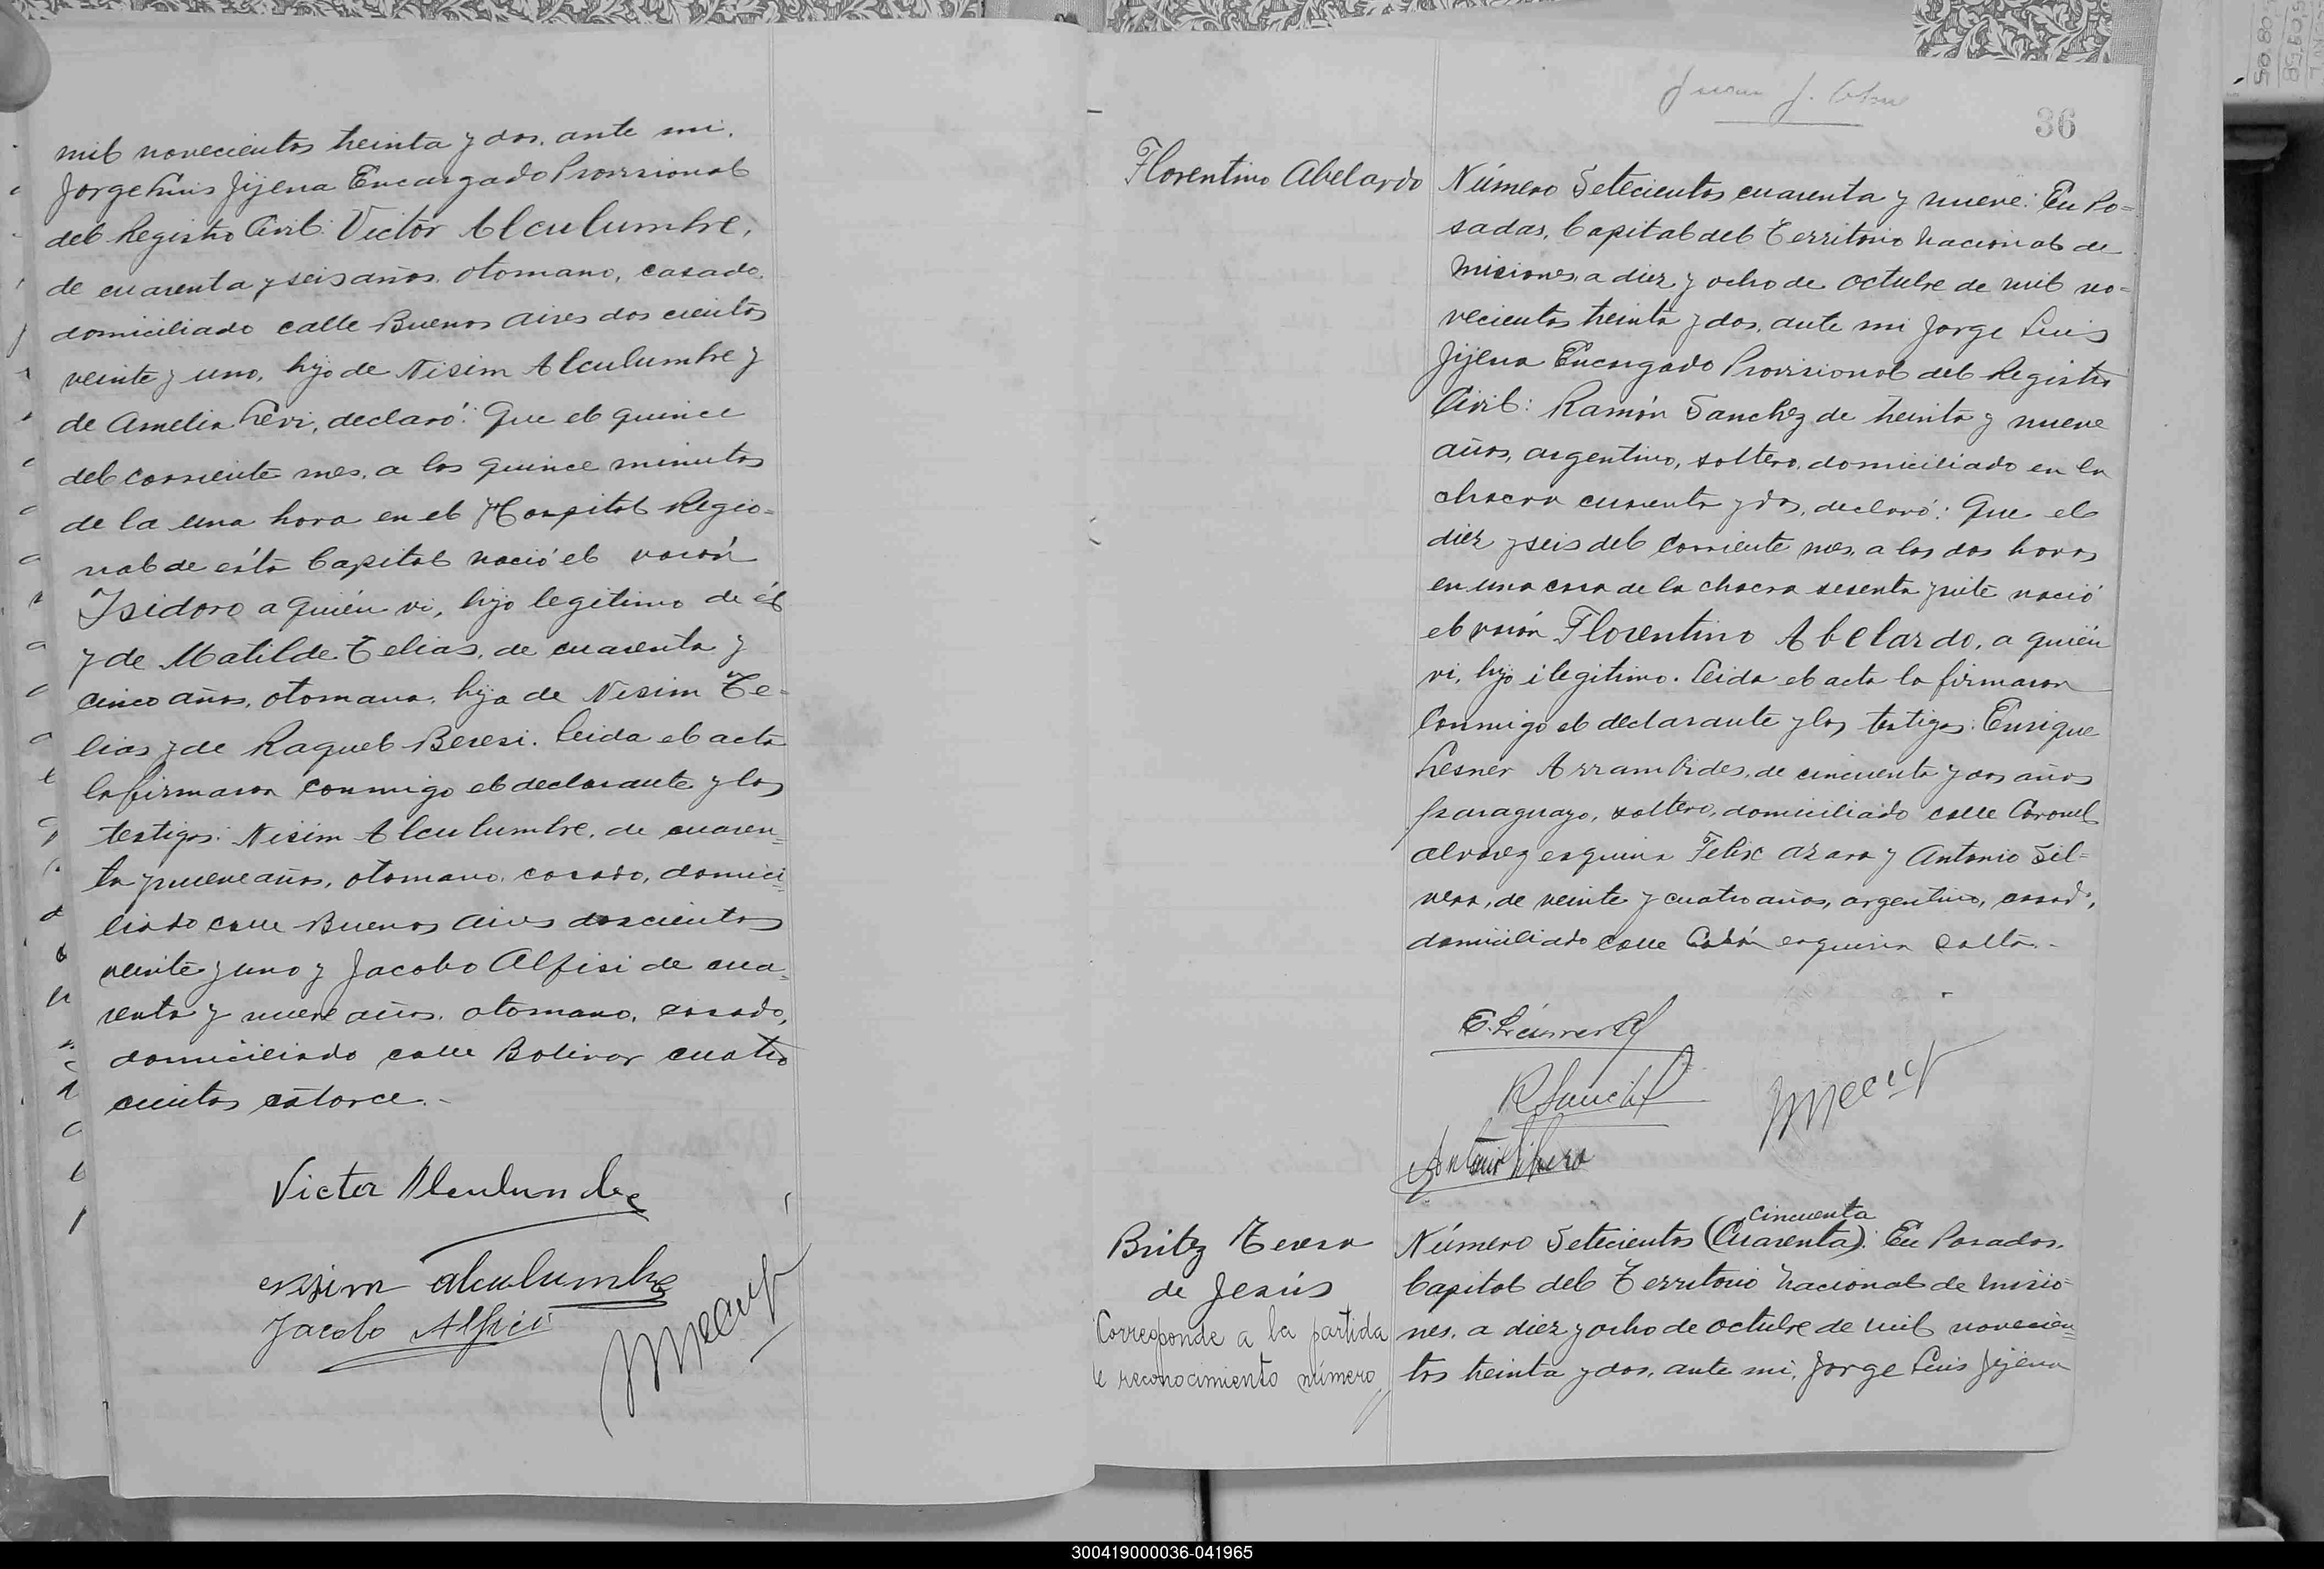 mil novecientos treinta y dos, ante mi,
Jorge Luis Jijena Encargado Provisional
del Registro Civil: Victor Alculumbre,
de cuarenta y seis años, otomano, casado,
domiciliado calle Buenos Aires dos cientos
veinte y uno, hijo de Nisim Alculumbre y
de Amelia Levi, declaró: Que el quince
del corriente mes, a los quince minutos
de la una hora en el Hospital Regio=
nal de ésta Capital nació el varón
Isidoro a quién vi, hijo legitimo de él
y de Matilde Telias, de cuarenta y
cinco años, otomana, hija de Nisim Te=
lias y de Raquel Beresi. Leida el acta
la firmaron conmigo el declarante y los
testigos: Nisim Alculumbre, de cuaren=
ta y nueve años, otomano, casado, domici=
liado calle Buenos Aires doscientos
veinte y uno y Jacobo Alfisi de cua=
renta y nueve años, otomano, casado,
domiciliado calle Bolivar cuatro
cientos catorce.-
Victor Alculumbre
Nisim Alculumbre
Jacobo Alfici
36
Florentino Abelardo
Número Setecientos cuarenta y nueve: En Po=
sadas, Capital del Territorio Nacional de
Misiones, a diez y ocho de octubre de mil no=
vecientos treinta y dos, ante mi Jorge Luis
Jijena Encargado Provisional del Registro
Civil: Ramón Sanchez de treinta y nueve
años, argentino, soltero, domiciliado en la
chacra cuarenta y dos, declaró: Que el
diez y seis del corriente mes, a las dos horas
en una casa de la chacra sesenta y siete nació
el varón Florentino Abelardo, a quién
vi, hijo ilegitimo. Leida el acta la firmaron
conmigo el declarante y los testigos: Enrique
Lesner Arrambides, de cincuenta y dos años
paraguayo, soltero, domiciliado calle Coronel
Alvarez esquina Felix Azara y Antonio Sil=
vera, de veinte y cuatro años, argentino, casado,
domiciliado calle Colón esquina Salta.-
R Sanchez
Antonio Silvera
Britez Teresa
de Jesús
Corresponde a la partida
de reconocimiento número
cincuenta
Número Setecientos (Cuarenta): En Posadas,
Capital del Territorio Nacional de Misio=
nes, a diez y ocho de octubre de mil novecien=
tos treinta y dos, ante mi, Jorge Luis Jijena
300419000036-041965